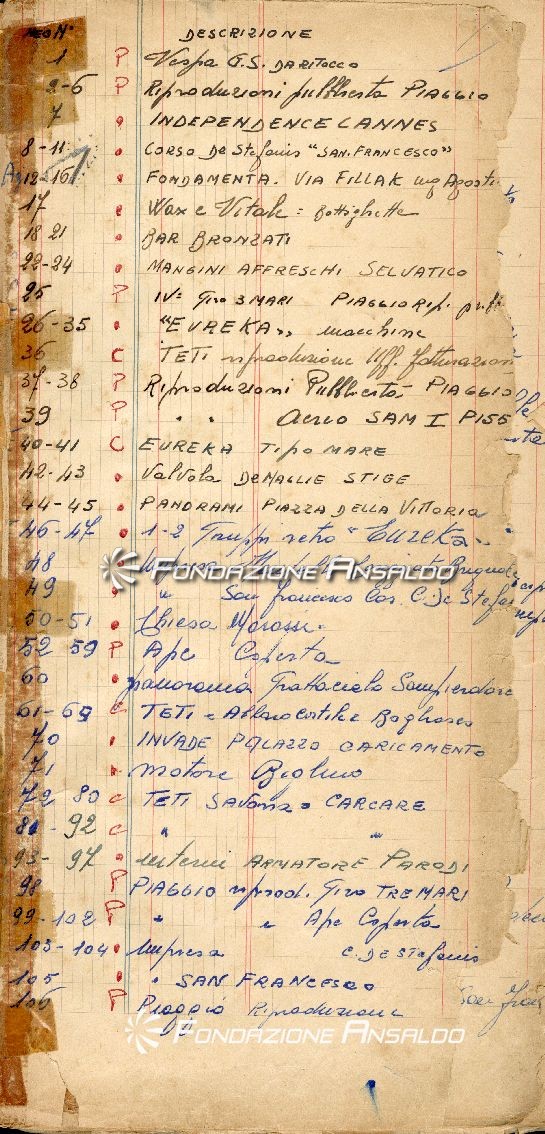 NEG Nº DESCRIZIONE
1 P Vespa G.S. DARITOCCO
2-6 P Riproduzioni pubblicità PIAGGIO
7 INDEPENDENCE CANNES
8-11 CORSO De Stefanis "SAN. FRANCESCO"
12-16 FONDAMENTA. VIA FILLAK
17 Wax e Vitale = Bottigliette
18 21 BAR BRONZATI
22-24 MANGINI AFFRESCHI SELVATICO
25 P IVº Giro 3 MARI PIAGGIO Rip.
26-35 "EUREKA" macchine
36 C TETI riproduzione Uff. fatturazion
37-38 P Riproduzioni Pubblicità PIAGGIO
39 P " " Aereo SAM I P155
40-41 C EUREKA TIPO MARE
42-43 VALVOLA DEMAGLIE STIGE
44-45 PANORAMI PIAZZA DELLA VITTORIA
46-47 1-2 Gruppi retro "Eureka"
48 Impresa
49 " San Francesco C. De Stefanis
50-51 Chiesa Marassi
52 59 P Ape Coperta
60 panorama Grattacielo Sampierdare
61-69 C TETI
70 INVADE PALAZZO CARICAMENTO
71 motore
72 80 C TETI SAVONA CARCARE
81-92 C " "
93-97 interni ARMATORE PARODI
98 P PIAGGIO riprod. Giro TRE MARI
99-102 P " " Ape Coperta
103-104 Impresa C. DE Stefanis
105 " SAN FRANCESCO
106 P Piaggio Riproduzione
FONDAZIONE ANSALDO
FONDAZIONE ANSALDO